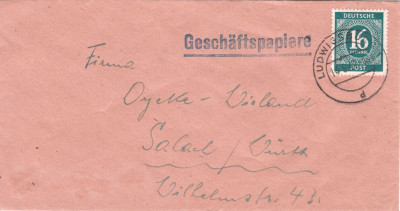 Geschäftspapiere
DEUTSCHE
16
PFENNIG
POST
LUDWIGS
d
Firma
Wieland
Salach/Württ
Wilhelmstr. 43.